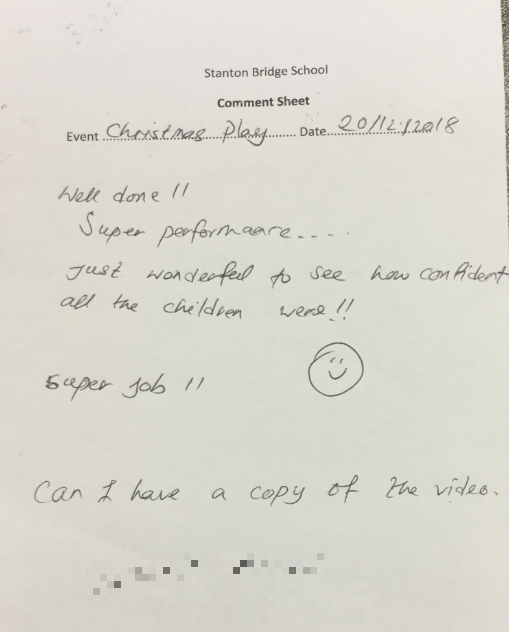 Stanton Bridge School
Comment Sheet
Event Christmas Play Date 20/12/2018
Well done !!
Super performance....
Just wonderful to see how confident
all the children were!!
Super Job !!
Can I have a copy of the video.